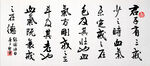 君子有三戒
少之時血氣
未定戒之在
色及其壯也血
氣方剛戒之
在鬥及其老也
血氣既衰戒
之在得